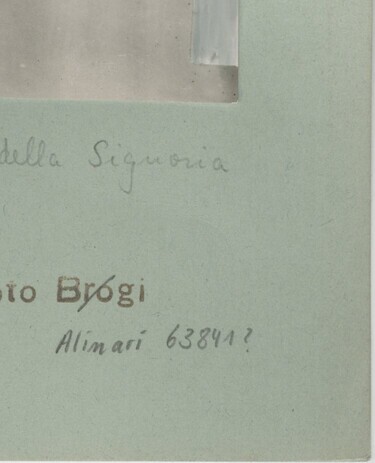 della Signoria
oto Brogi
Alinari 63841?